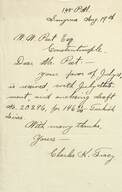 Smyrna Aug 19th
W. W. Peet Esq
Constantinople.
Dear Mr. Peet—
your favor of July
is received, with July state-
ment, and enclosing draft
No. 20296, for
Liras
With many thanks,
Yours—
Charles K. Tracy